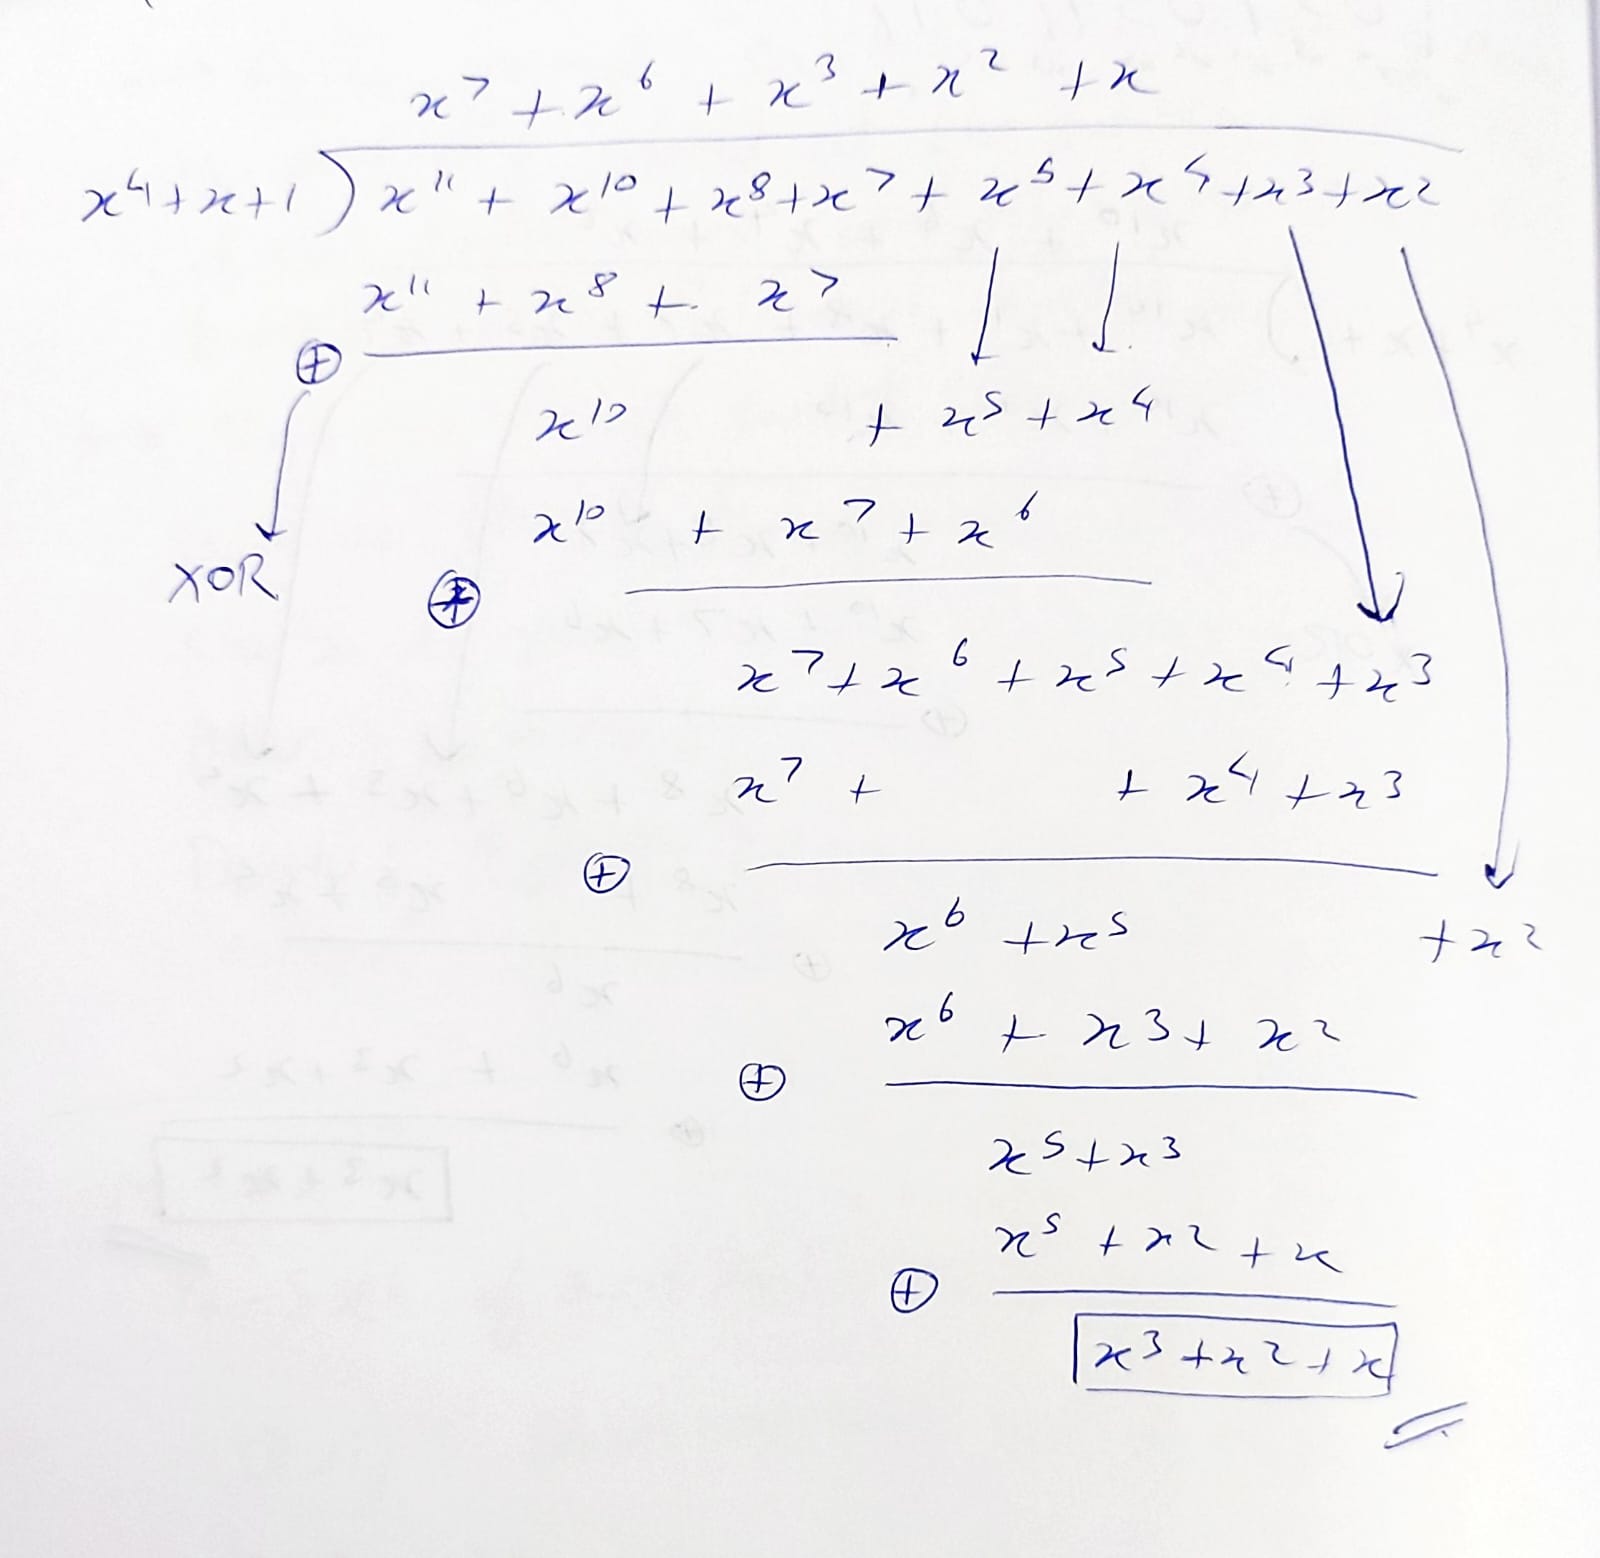 x⁷ + x⁶ + x³ + x² + x
x⁴+x+1 ) x¹¹ + x¹⁰ + x⁸ + x⁷ + x⁵ + x⁴ + x³ + x²
x¹¹ + x⁸ + x⁷
⊕
x¹⁰ + x⁵ + x⁴
x¹⁰ + x⁷ + x⁶
XOR
⊕
x⁷ + x⁶ + x⁵ + x⁴ + x³
x⁷ + + x⁴ + x³
⊕
x⁶ + x⁵ + x²
x⁶ + x³ + x²
⊕
x⁵ + x³
x⁵ + x² + x
⊕
x³ + x² + x